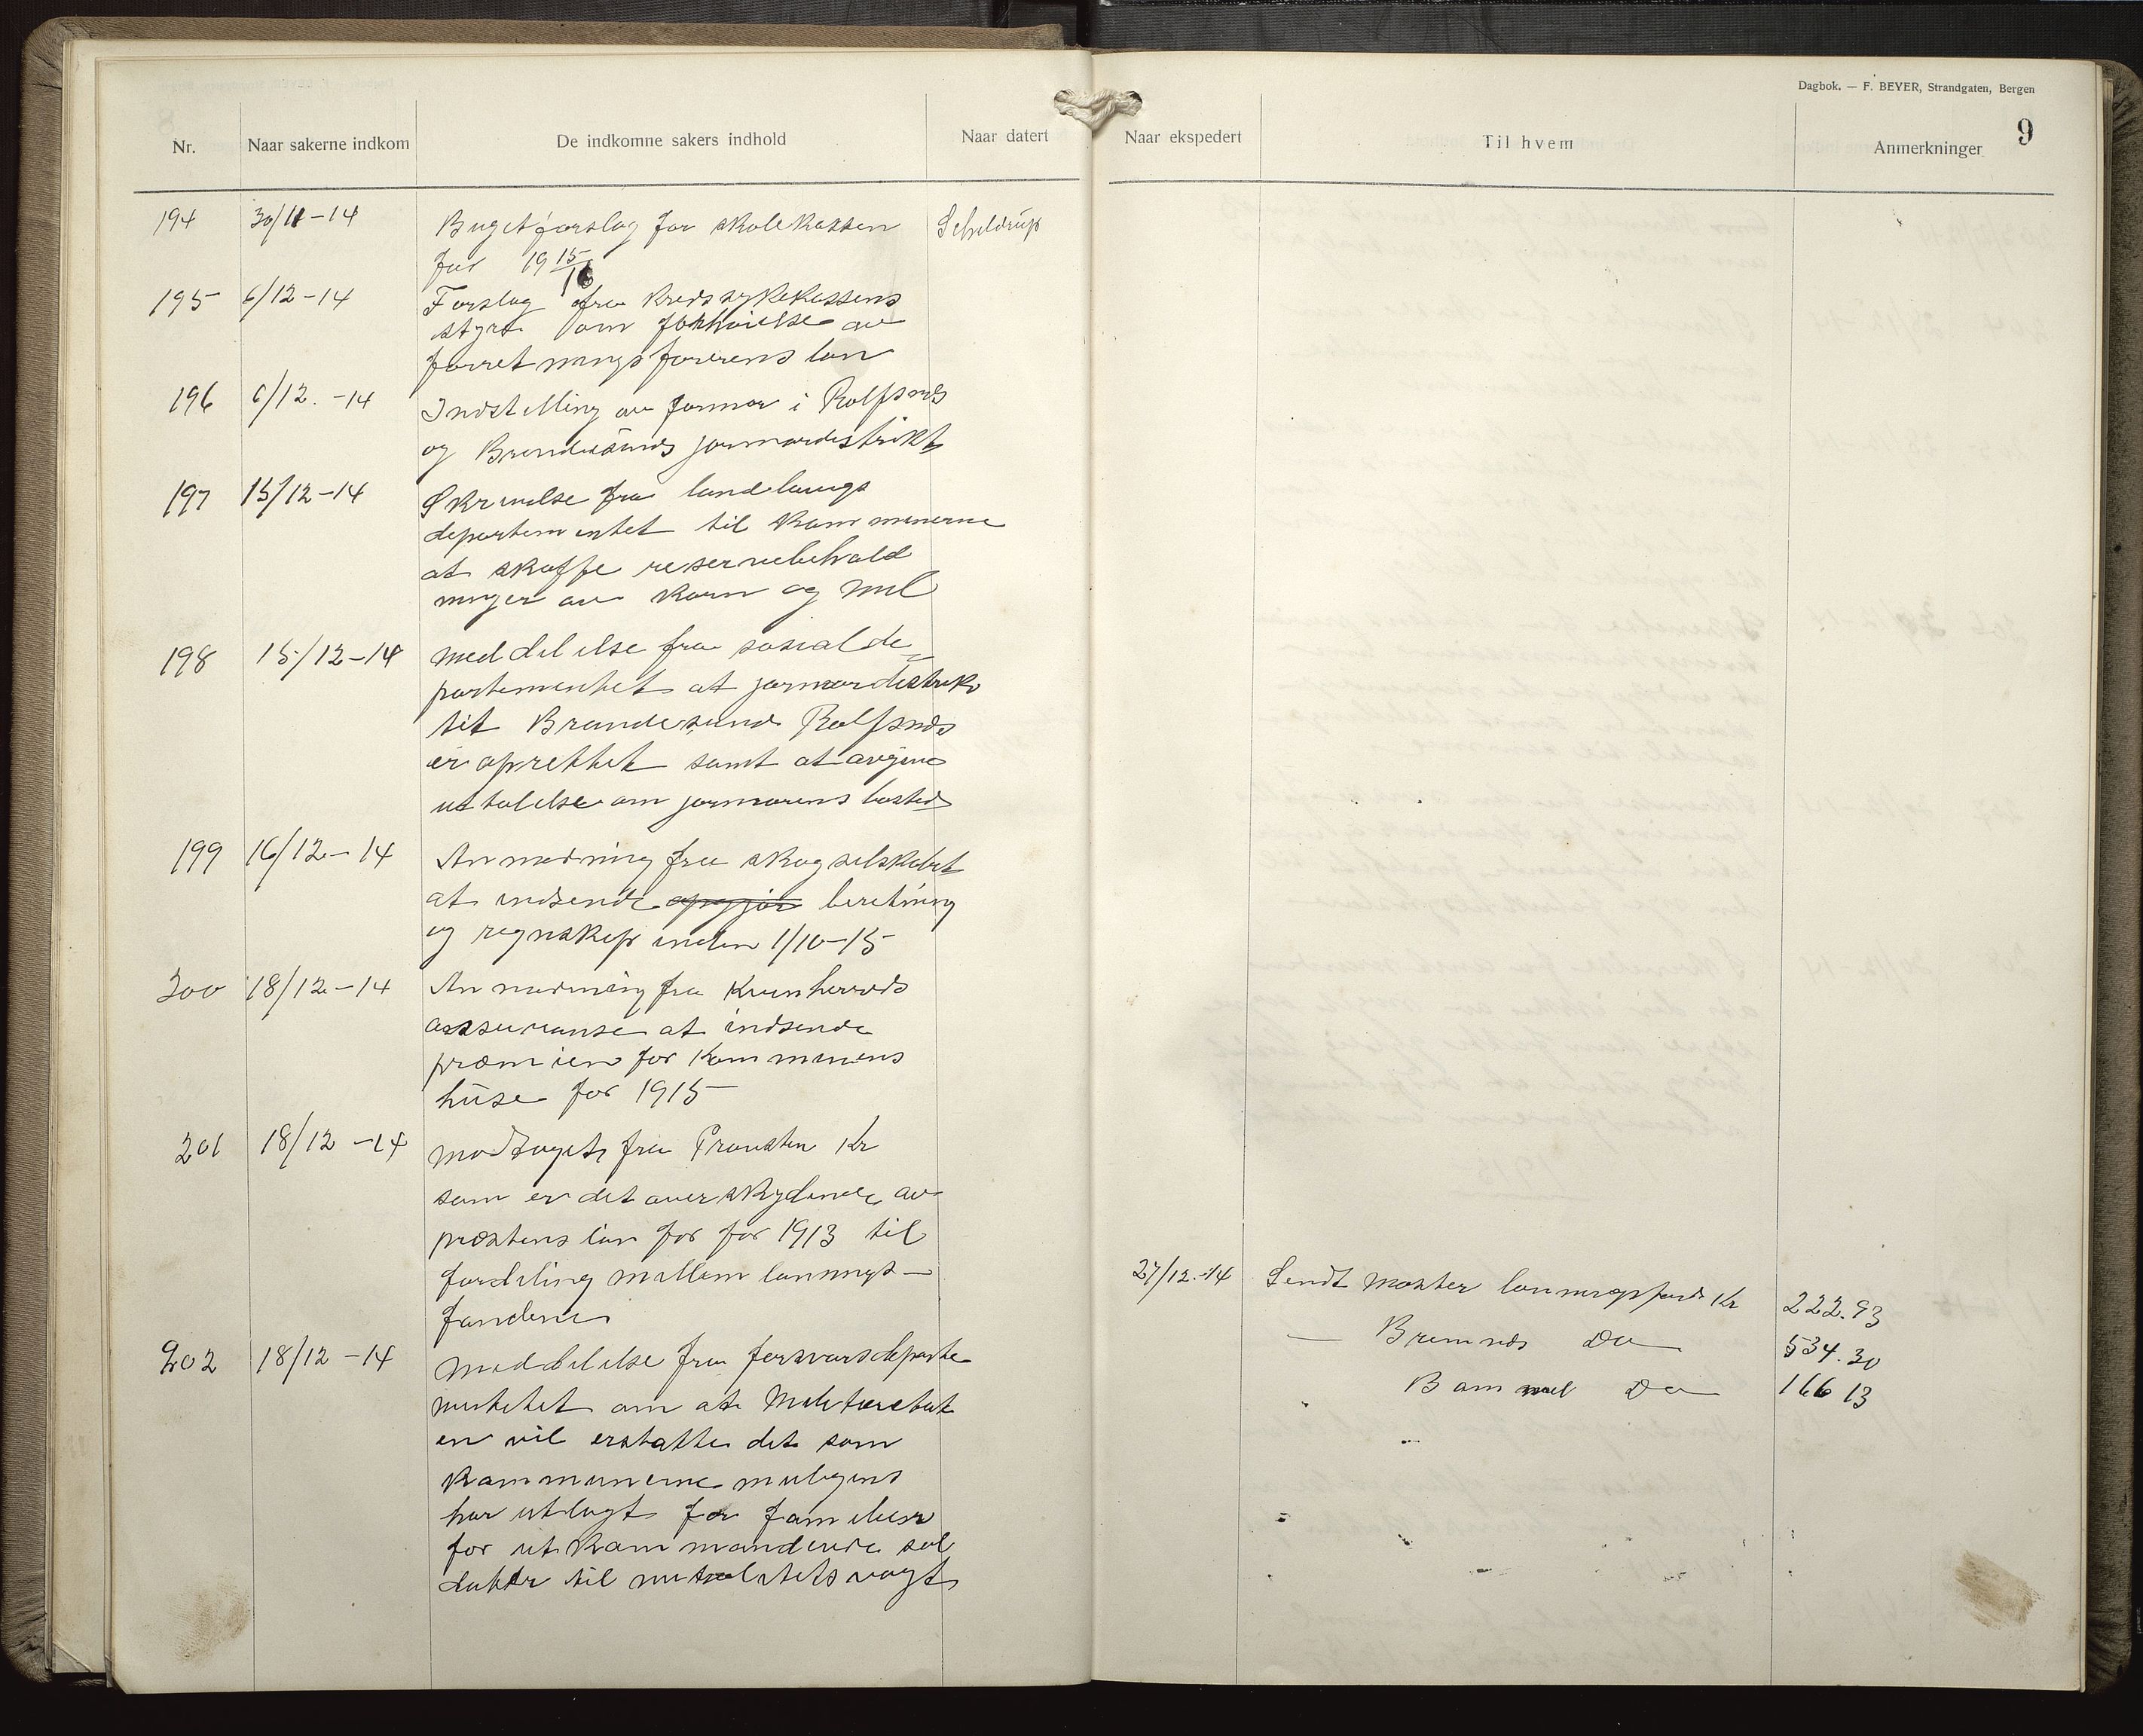 Dagbok. — F. BEYER, Strandgaten, Bergen
9
Nr. Naar sakerne indkom De indkomne sakers indhold Naar datert Naar ekspedert Til hvem Anmerkninger
194 30/11-14 Bugetforslag for skolekassen Scheldrup
for 1915/16
195 6/12-14 Forslag fra kredssykekassens
styre om forhøielse av
forretningsførerens løn
196 6/12.-14 Indstilling av jormor i Rolfsnes
og Brandesunds jormordistrikt
197 15/12-14 Skrivelse fra landbrugs
departementet til kommunerne
at skaffe reservebehold
ninger av korn og mel
198 15/12-14 meddelelse fra sosialde=
partementet at jormordistrik
tet Brandesund Rolfsnes
er oprettet samt at avgive
uttalelse om jormorens bosted
199 16/12-14 Anmodning fra skogselskabet
at indsende opgjør beretning
og regnskap inden 1/10-15
200 18/12-14 Anmodning fra Kvinherreds
assuranse at indsende
præmien for kommunens
huse for 1915
201 18/12-14 modtaget fra Provsten Kr
som er det overskydende av
prestens løn for for 1913 til
fordeling mellem lønnings-
fondene
27/12.-14 Sendt Moster lønningsfond Kr 222.93
— Bremnes Do 534.30
Bømmel Do 166 13
202 18/12-14 meddelelse fra forsvarsdeparte
mentet om at Militæretat
en vil erstatte det som
kommunerne muligens
har utlagt for familier
for utkommanderte sol
dater til nutralitetsvagt